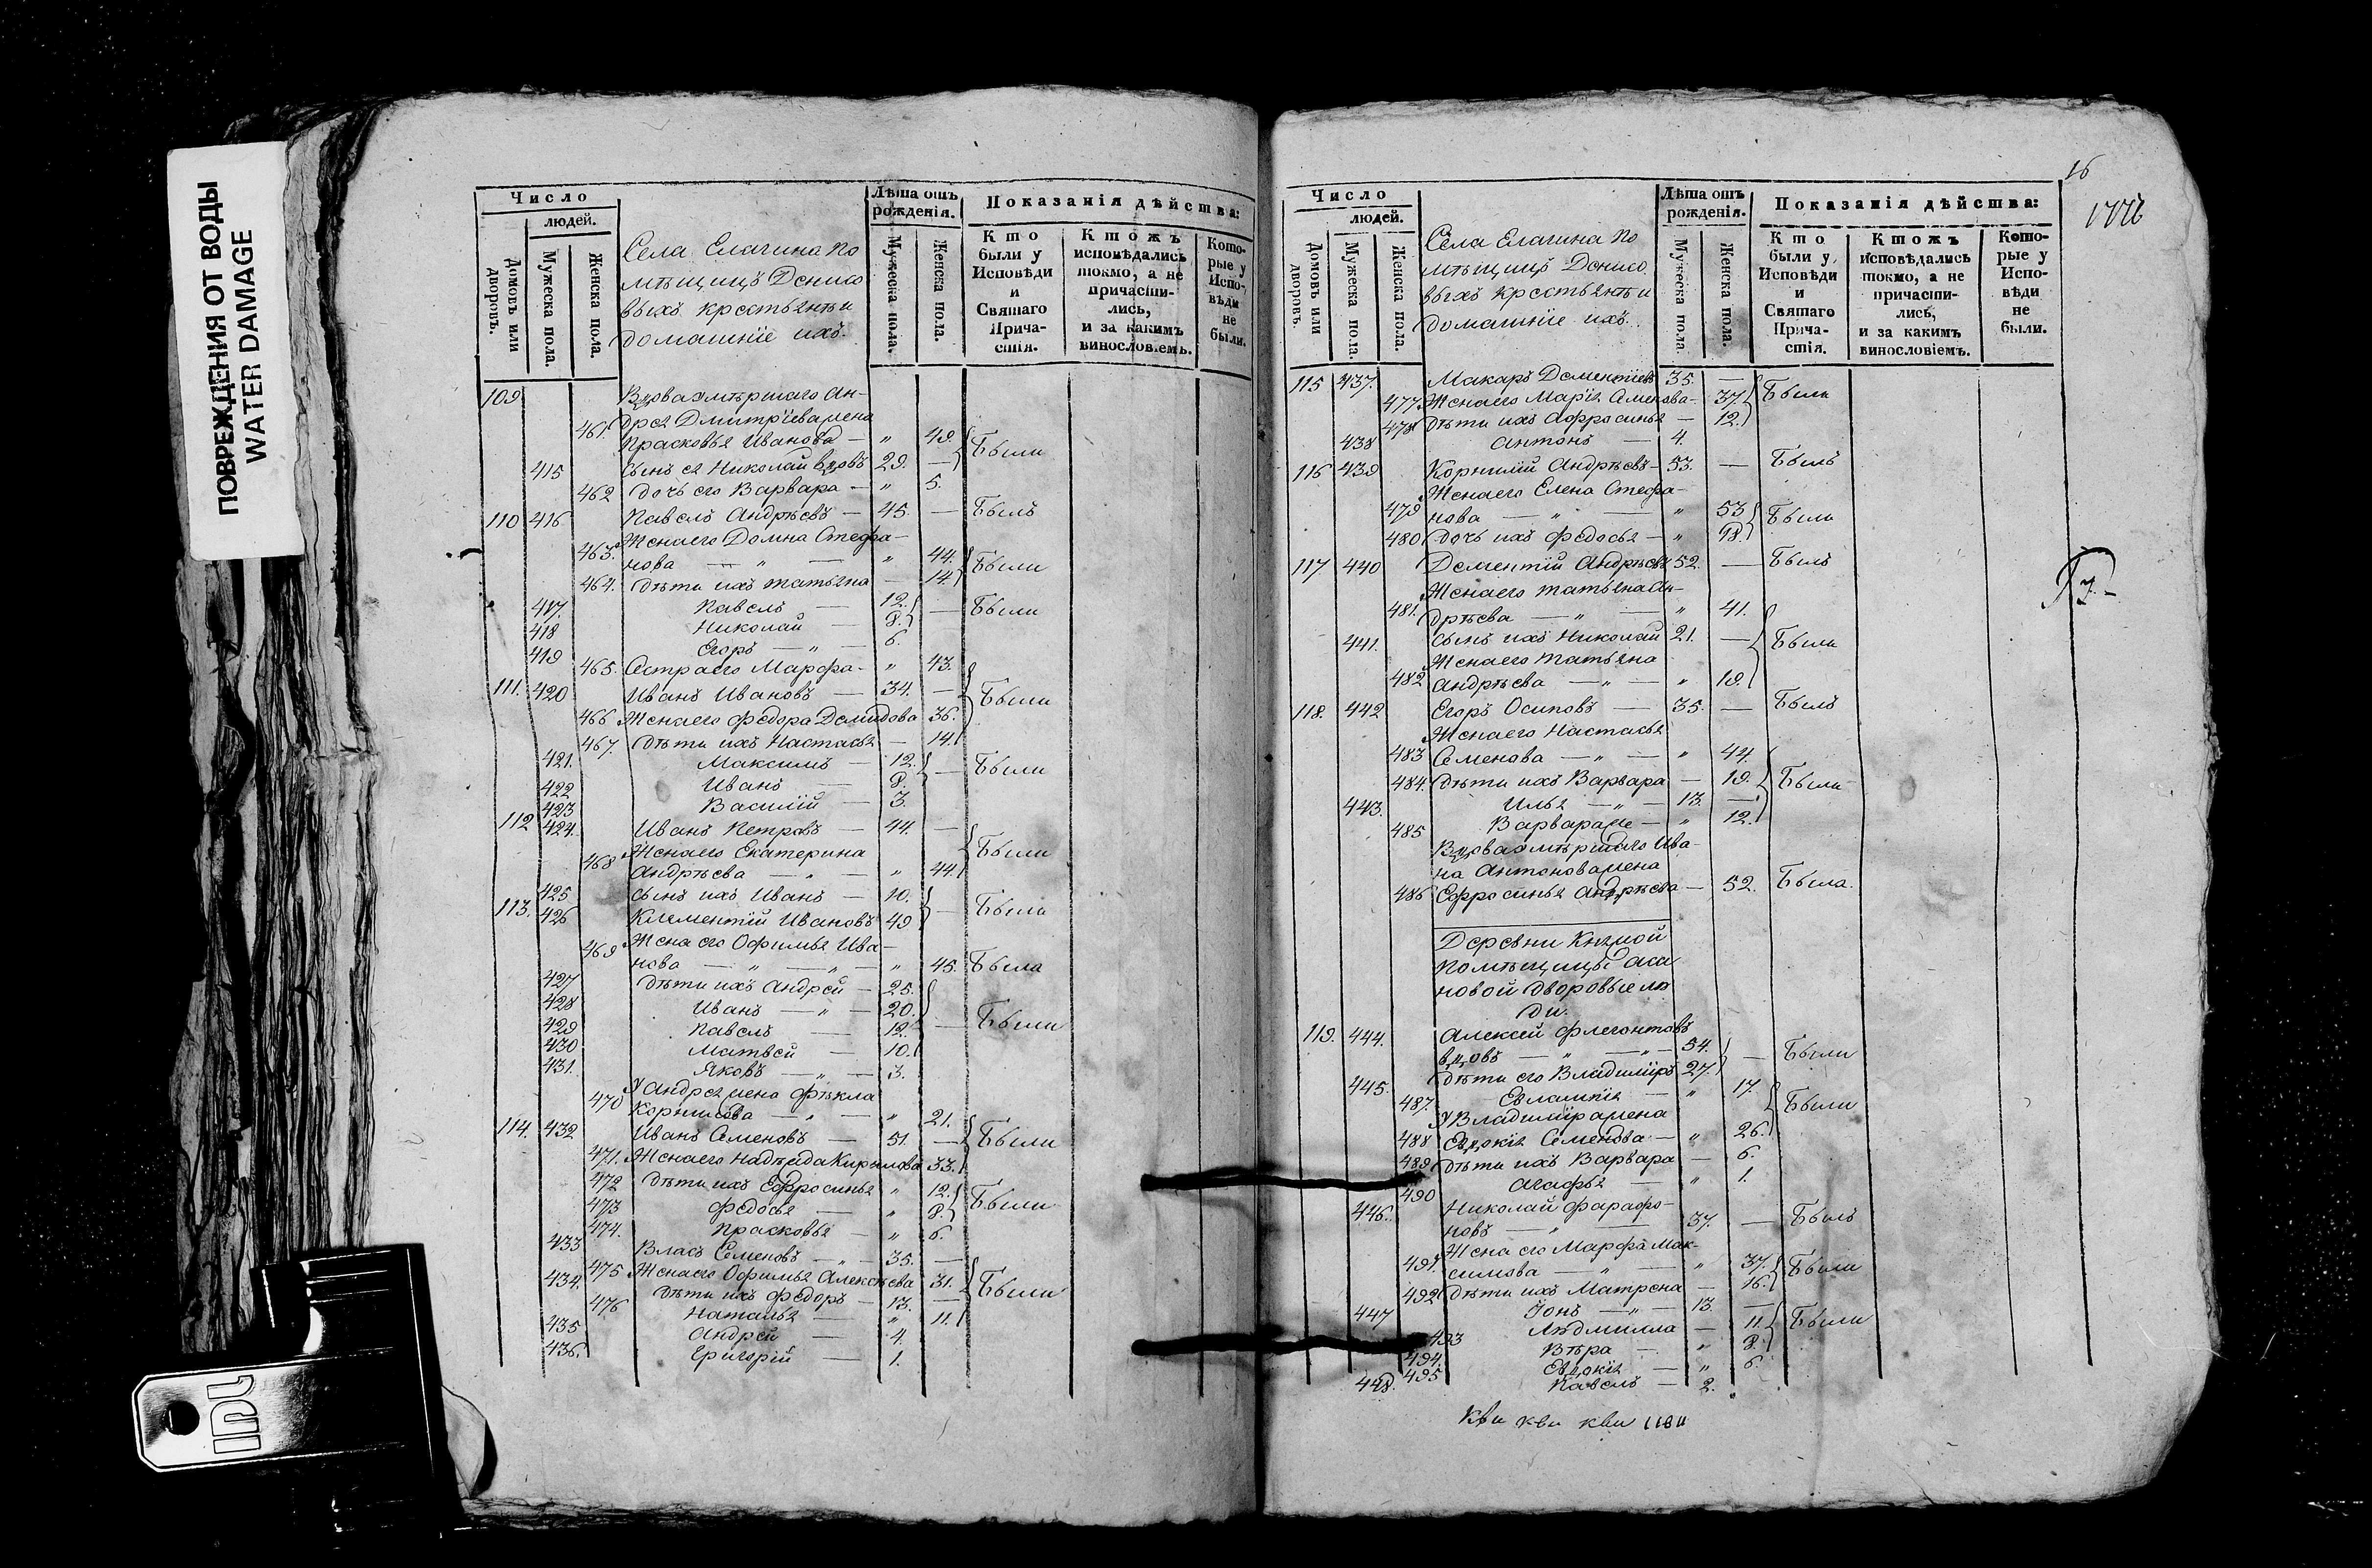 ПОВРЕЖДЕНИЯ ОТ ВОДЫ
WATER DAMAGE
Число
людей.
Домовъ или дворовъ.
Мужеска пола.
Женска пола.
Села Елагина по
мѣщицъ Денисо
выхъ крестьянѣ и
домашніе ихъ.
Лѣта отъ рожденія.
Мужеска пола.
Женска пола.
Показанія дѣйства:
Кто были у Исповѣди и Святаго Прича-стія.
Ктожъ исповѣдались токмо, а не причасти-лись, и за какимъ винословіемъ.
Кото-рые у Испо-вѣди не были.
109 Вдова умѣршаго Ан-
дрея Дмитріева жена
461. Прасковья Иванова — „ 49. Были
415 Сынъ ея Николай вдовъ 29. —
462 Дочь его Варвара — „ 5.
110 416 Павелъ Андрѣевъ — 45. — Былъ
Жена его Домна Стефа-
463. нова — „ — „ 44. Были
464. Дѣти ихъ Татьяна — 14.
417. Павелъ — 12. — Были
418 Николай — 8.
419 Егоръ — „ — 6.
465. Сестра его Марфа — „ 43.
111. 420 Иванъ Ивановъ — 34. — Были
466 Жена его Федора Демидова 36.
467. Дѣти ихъ Настасья — 14.
421. Максимъ — 12. — Были
422 Иванъ — 8.
423 Василій — 3.
112 424. Иванъ Петровъ — 44. —
Жена его Екатерина Были
468 Андрѣева — „ — „ 44.
425 Сынъ ихъ Иванъ — 10.
113. 426 Клементій Ивановъ 49 — Были
469 Жена его Офимья Ива-
нова — „ — „ — „ 45. Была
427 Дѣти ихъ Андрей — 25.
428 Иванъ — „ — 20.
429 Павелъ — 12. — Были
430 Матвей — 10.
431. Яковъ — „ — 3.
У Андрея жена Фѣкла
470 Корнилова — „ — „ 21.
114. 432 Иванъ Семеновъ — 51. — Были
471. Жена его Надѣжда Кирилова 33.
472 Дѣти ихъ Ефросинья „ 12.
473 Федосья — „ 8. Были
474. Прасковья — „ 6.
433 Власъ Семеновъ — „ — 35. —
475 Жена его Офимья Алексѣева 31. Были
434. Дѣти ихъ Федоръ — 13. —
476 Наталья — „ 11.
435 Андрей — 4.
436. Григорій — 1.
16
Число
людей.
Домовъ или дворовъ.
Мужеска пола.
Женска пола.
Села Елагина по
мѣщицъ Денисо
выхъ крестьянѣ и
домашніе ихъ.
Лѣта отъ рожденія.
Мужеска пола.
Женска пола.
Показанія дѣйства:
Кто были у Исповѣди и Святаго Прича-стія.
Ктожъ исповѣдались токмо, а не причасти-лись, и за какимъ винословіемъ.
Кото-рые у Испо-вѣди не были.
115 437. Макаръ Дементіевъ 35. — Были
477. Жена его Марія Семенова — 37.
478 Дѣти ихъ Афросинья — 12.
438 Антонъ — 4.
116 439 Корнилій Андрѣевъ — 53. — Былъ
Жена его Елена Стефа-
479 нова — „ — „ 53 Были
480 Дочь ихъ Федосья — „ 18.
117 440 Дементій Андрѣевъ 52. — Былъ
Жена его Татьяна Ан-
481. дрѣева — „ — „ 41.
441. Сынъ ихъ Николай 21. — Были
Жена его Татьяна
482 Андрѣева — „ — „ 19.
118. 442 Егоръ Осиповъ — 35. — Былъ
Жена его Настасья
483 Семенова — „ — „ 44.
484. Дѣти ихъ Варвара — 19. Были
443. Илья — „ — 13. —
485 Варвара же — „ 12.
Вдова умѣршаго Ива-
на Антонова жена
486 Ефросинья Андрѣева — 52. Была.
Деревни Княжой
помѣщицы
новой дворовые лю
ди.
119. 444. Алексей Флегонтовъ
вдовъ — „ — „ — 54. — Были
445. Дѣти его Владиміръ 27.
487. Евлампія — „ 17. Были
У Владиміра жена
488 Евдокія Семенова — „ 26.
489 Дѣти ихъ Варвара — 6.
490 Агафья — „ 1.
446. Николай Фарафо-
новъ — „ — 37. — Былъ
Жена его Марфа Мак-
491. симова — „ — „ 37. Были
492 Дѣти ихъ Матрена — 16.
447 Іонъ — „ — 13. —
493 Людмилла — 11. Были
494. Вѣра — „ 8.
495 Евдокія — „ 6.
448. Павелъ — 2.